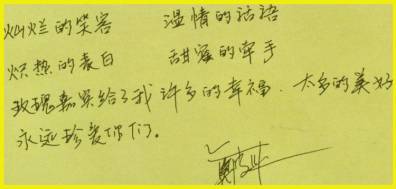 灿烂的笑容 温情的话语
炽热的表白 甜蜜的牵手
玫瑰真果给了我许多的幸福.太多的美好
永远珍爱你们。